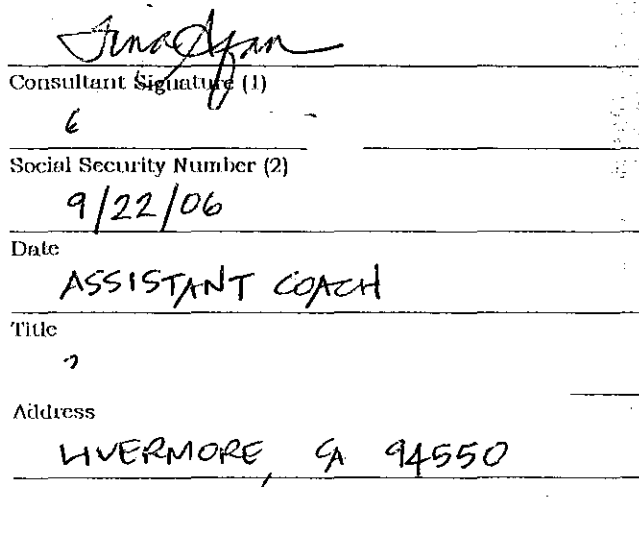 Consultant Signature (1)
6
Social Security Number (2)
9/22/06
Date
ASSISTANT COACH
Title
Address
LIVERMORE, CA 94550